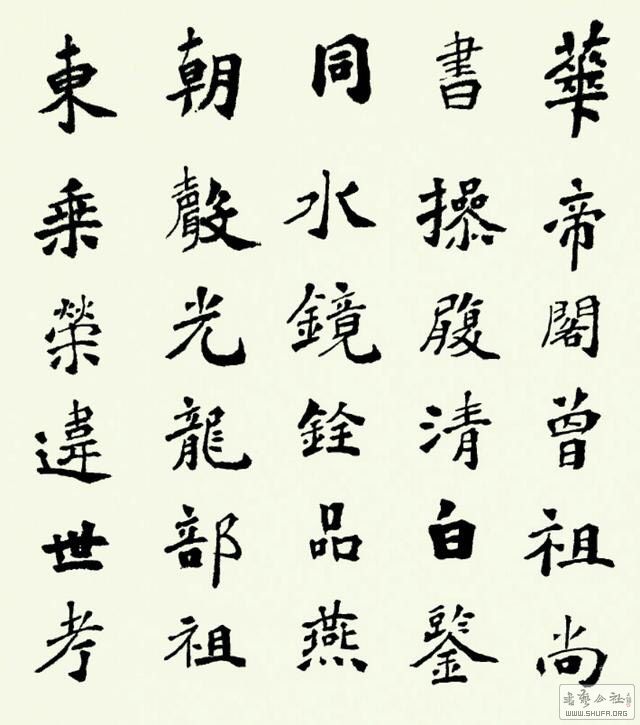 華帝閣曾祖尚
書操履清白鑒
同水鏡銓品燕
朝聲光龍部祖
東乘榮違世考
WWW.SHUFA.ORG